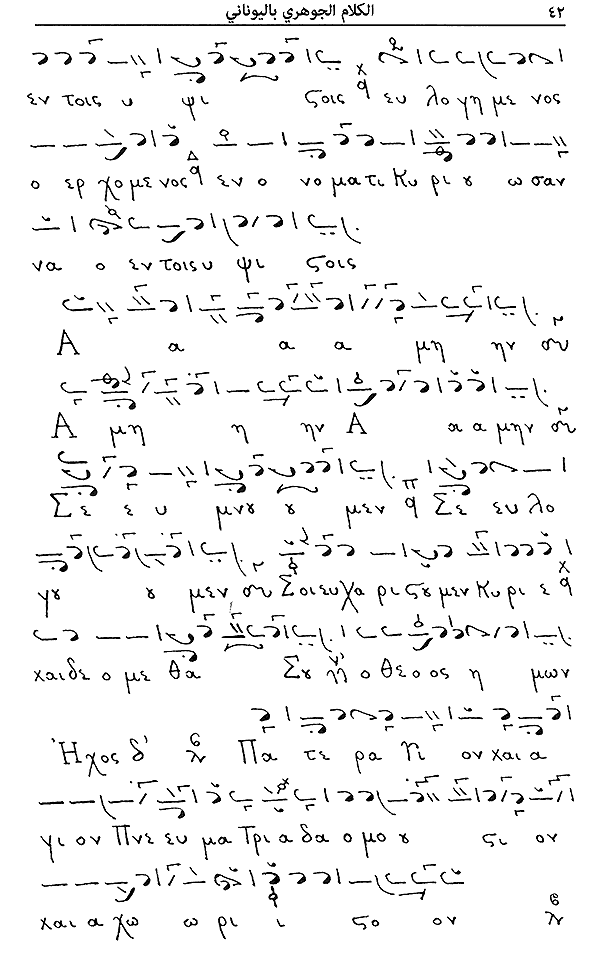 ٤٢ الكلام الجوهري باليوناني
εν τοις υ ψι ϛοις ευ λο γη με νος
ο ερ χο με νος εν ο νο μα τι Κυ ρι ȣ ω σαν
να ο εν τοις υ ψι ϛοις
Α α α α μη ην
Α μη η ην Α α α μην
Σε ε υ μνȣ ȣ μεν Σε ευ λο
γȣ ȣ μεν Σοι ευ χα ρι ϛȣ μεν Κυ ρι ε
και δε ο με θα Σȣ ο θε ο ος η μων
Ἦχος δ' Πα τε ρα Υι ον και α
γι ον Πνε ευ μα Τρι α δα ο μο ȣ ϛι ον
και α χω ω ρι ι ϛο ον